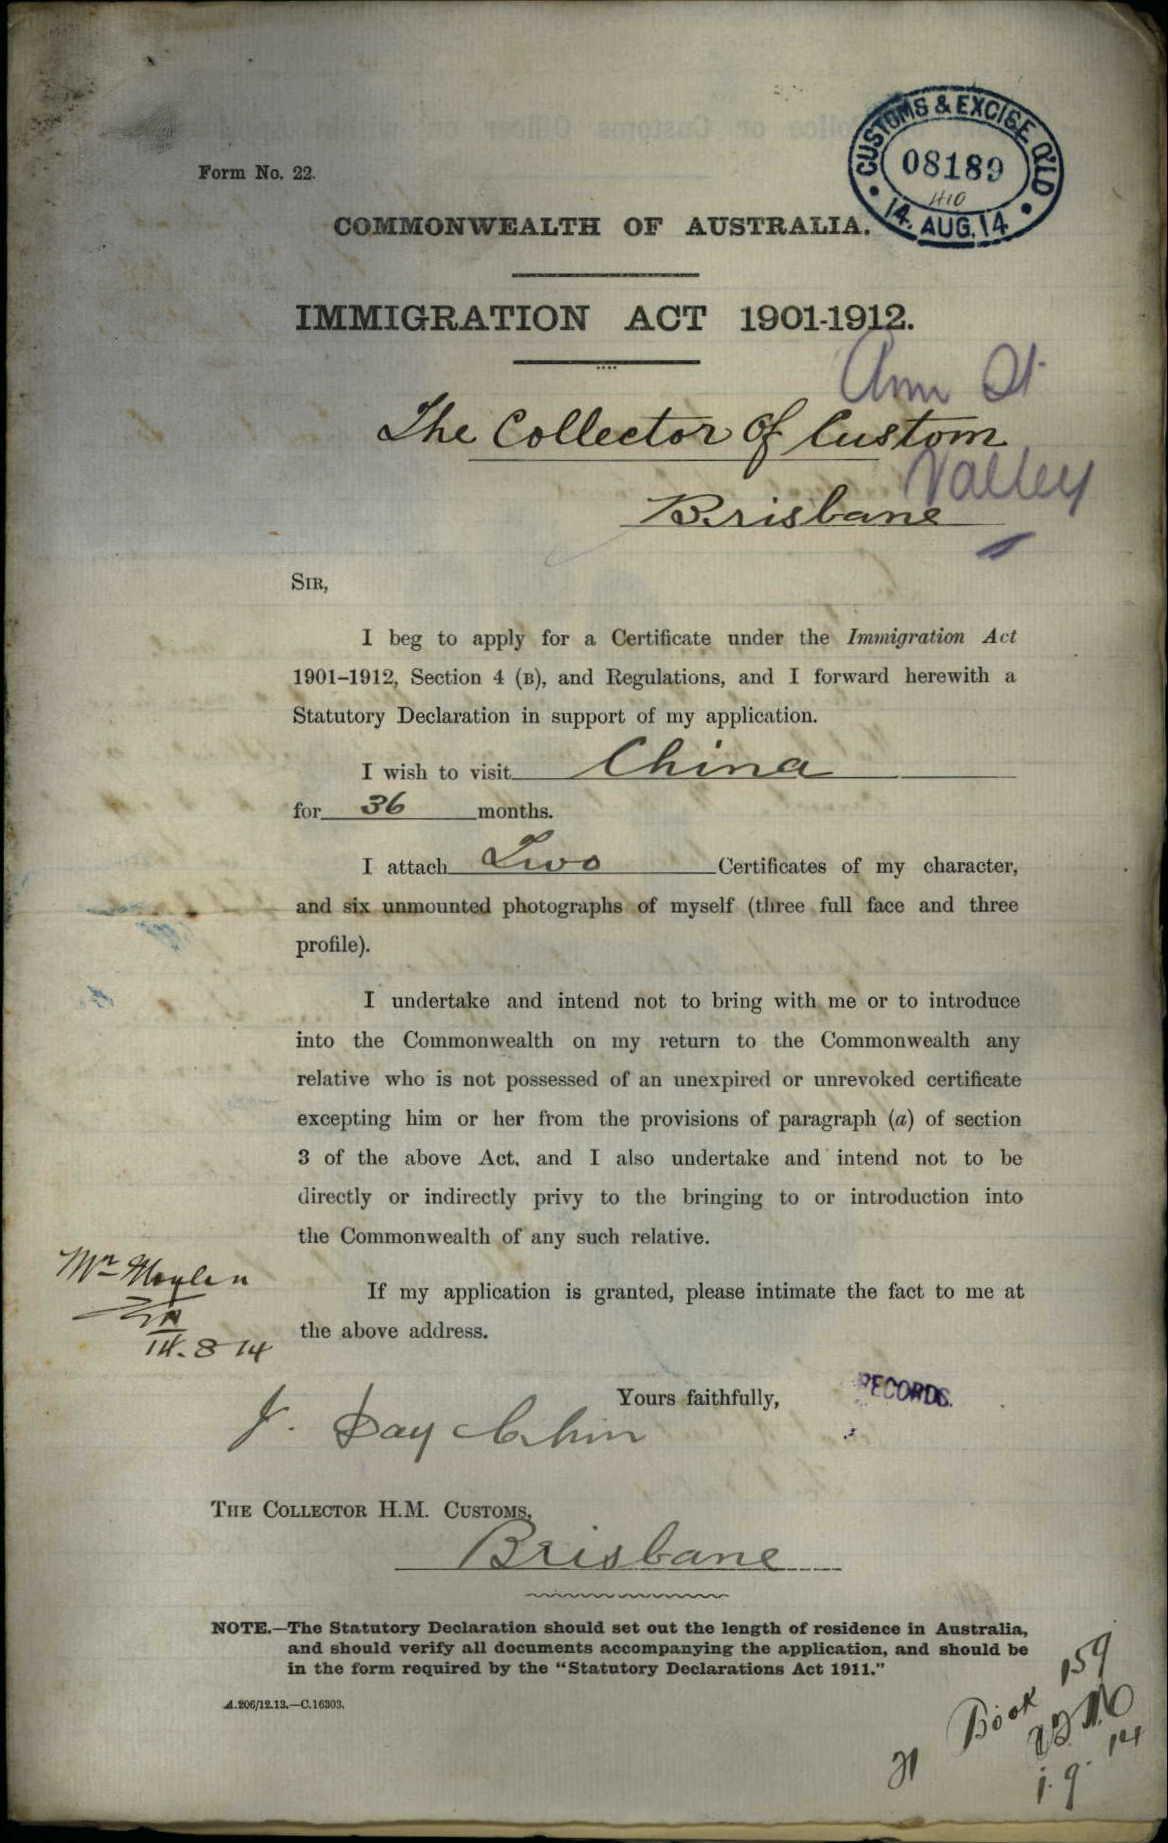 CUSTOMS & EXCISE Q'LD
08189
H10
14. AUG. 14
Form No. 22.
COMMONWEALTH OF AUSTRALIA.
IMMIGRATION ACT 1901-1912.
Ann St
The Collector of Custom
Valley
Brisbane
SIR,
I beg to apply for a Certificate under the Immigration Act
1901-1912, Section 4 (B), and Regulations, and I forward herewith a
Statutory Declaration in support of my application.
I wish to visit China
for 36 months.
I attach Two Certificates of my character,
and six unmounted photographs of myself (three full face and three
profile).
I undertake and intend not to bring with me or to introduce
into the Commonwealth on my return to the Commonwealth any
relative who is not possessed of an unexpired or unrevoked certificate
excepting him or her from the provisions of paragraph (a) of section
3 of the above Act, and I also undertake and intend not to be
directly or indirectly privy to the bringing to or introduction into
the Commonwealth of any such relative.
Mr Moylan
If my application is granted, please intimate the fact to me at
the above address.
14. 8 14
Yours faithfully,
RECORDS.
J. Day Chin
THE COLLECTOR H.M. CUSTOMS,
Brisbane
NOTE.—The Statutory Declaration should set out the length of residence in Australia,
and should verify all documents accompanying the application, and should be
in the form required by the "Statutory Declarations Act 1911."
A.206/12.13.—C.16303.
Book 159
1. 9. 14